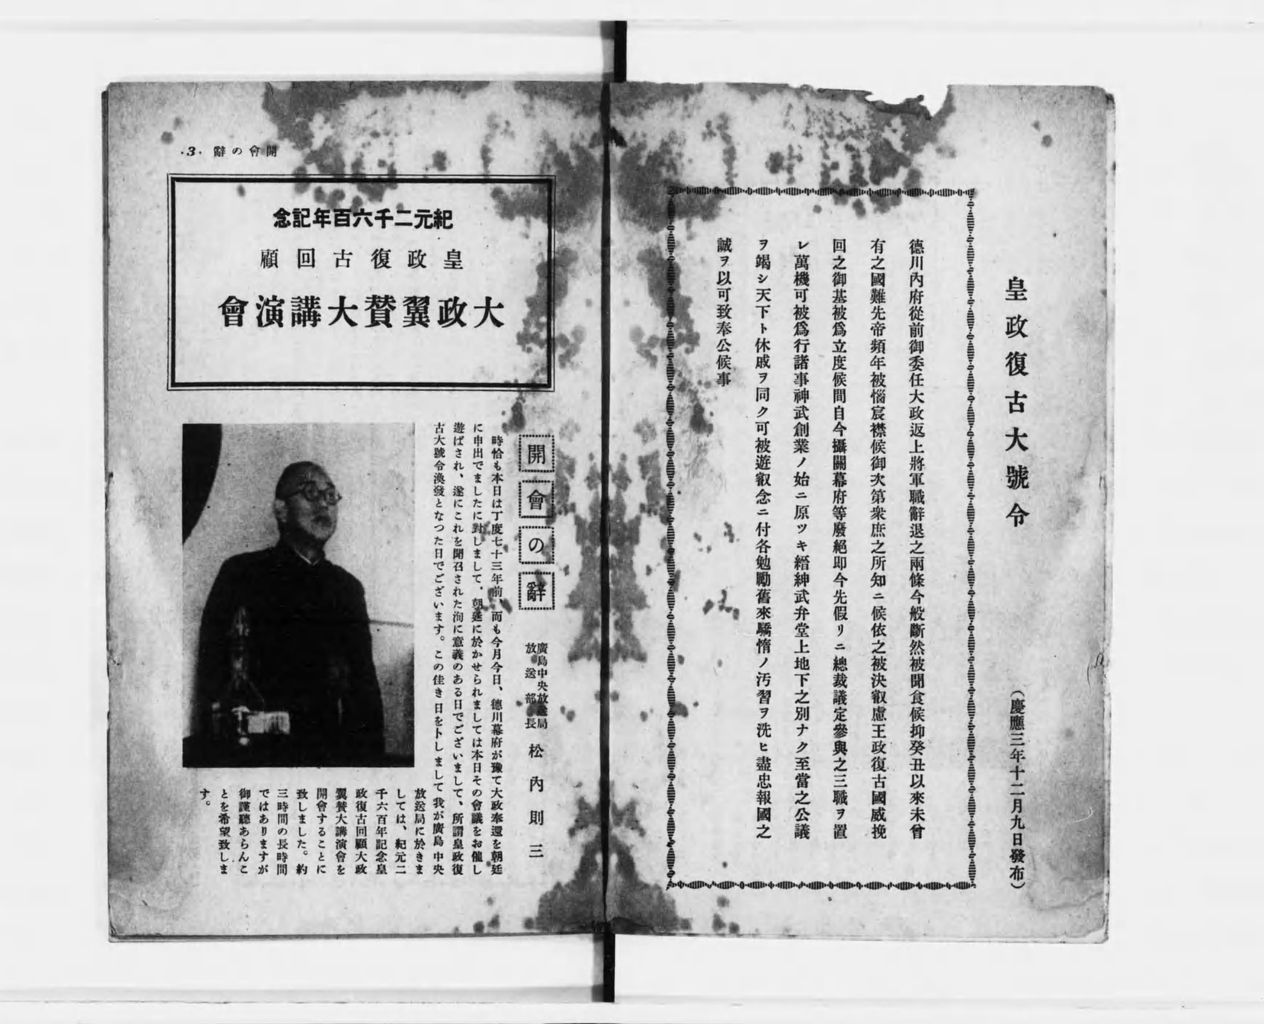 皇政復古大號令
（慶應三年十二月九日發布）
德川內府從前御委任大政返上將軍職辭退之兩條今般斷然被聞食候抑癸丑以來未曾
有之國難先帝頻年被惱宸襟候御次第衆庶之所知ニ候依之被決叡慮王政復古國威挽
回之御基被爲立度候間自今攝關幕府等廢絕卽今先假リニ總裁議定參與之三職ヲ置
レ萬機可被爲行諸事神武創業ノ始ニ原ツキ縉紳武弁堂上地下之別ナク至當之公議
ヲ竭シ天下ト休戚ヲ同ク可被遊叡念ニ付各勉勵舊來驕惰ノ汚習ヲ洗ヒ盡忠報國之
誠ヲ以可致奉公候事
開會の辭 ·3·
紀元二千六百年記念
皇政復古回顧
大政翼贊大講演會
開會の辭
廣島中央放送局
放送部長
松內則三
時恰も本日は丁度七十三年前、而も今月今日、德川幕府が豫て大政奉還を朝廷
に申出でましたに對しまして、朝廷に於かせられましては本日その會議をお催し
遊ばされ、遂にこれを聞召された洵に意義のある日でございまして、所謂皇政復
古大號令渙發となつた日でございます。この佳き日を卜しまして我が廣島中央
放送局に於きま
しては、紀元二
千六百年記念皇
政復古回顧大政
翼贊大講演會を
開會することに
致しました。約
三時間の長時間
ではありますが
御謹聽あらんこ
とを希望致しま
す。